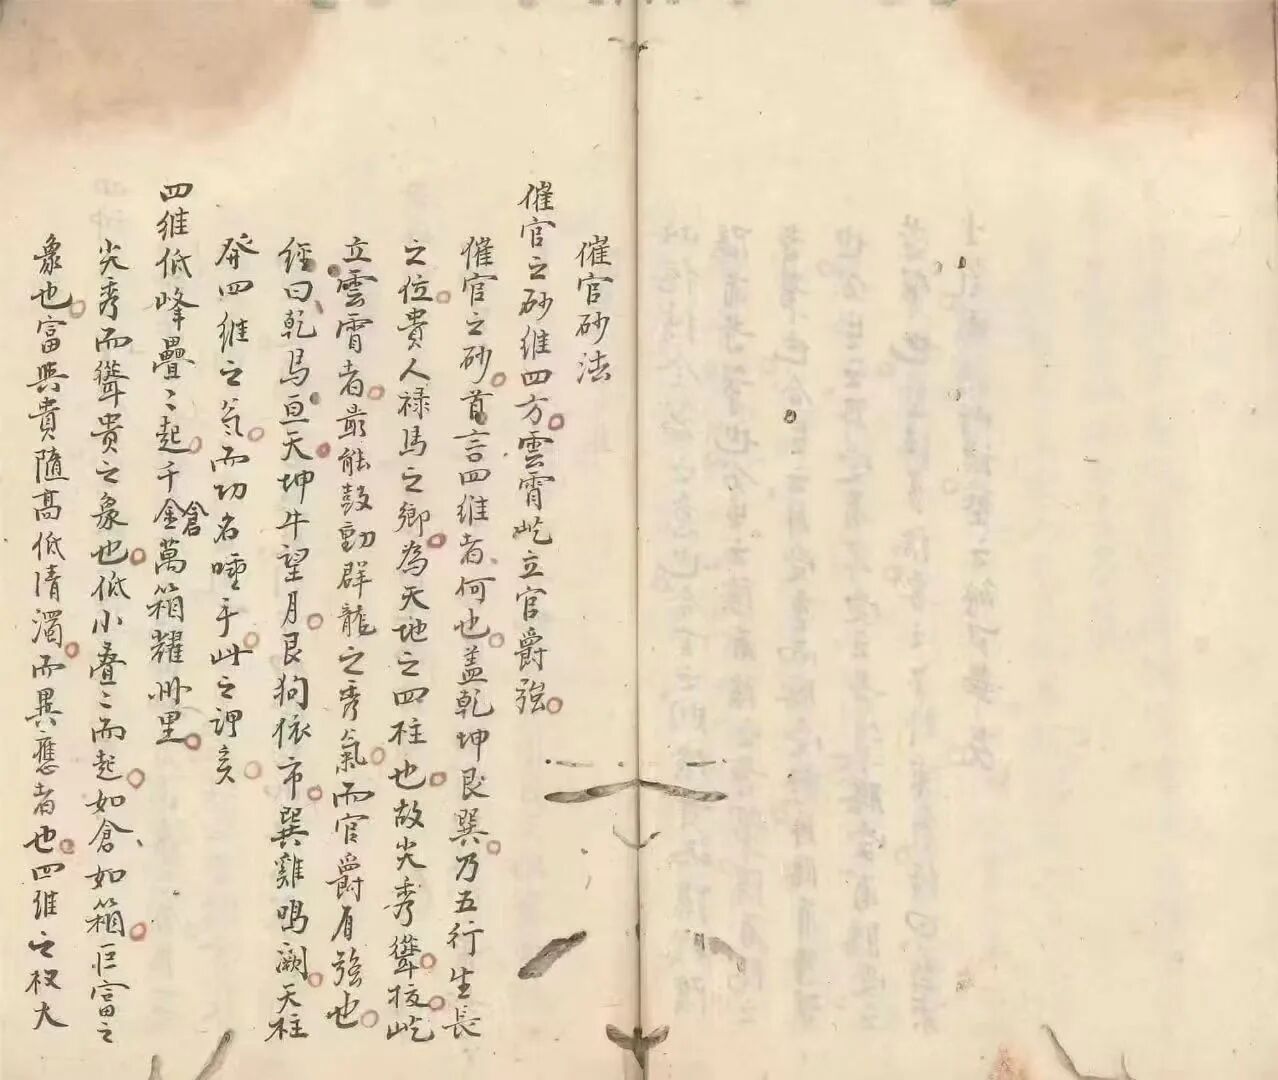 催官砂法
催官之砂維四方雲霄屹立官爵強
催官之砂首言四維者何也盖乾坤艮巽乃五行生長
之位貴人祿馬之鄉為天地之四柱也故尖秀聳拔屹
立雲霄者最能鼓動群龍之秀氣而官爵肩強也
經曰乾馬亘天坤牛望月艮狗依市巽雞鳴闕天柱
發四維之氣而功名唾手此之謂矣
四維低峰疊〻起千倉金萬箱耀州里
尖秀而聳貴之象也低小叠〻而起如倉如箱巨富之
象也富與貴隨高低清濁而異應者也四維之杈大